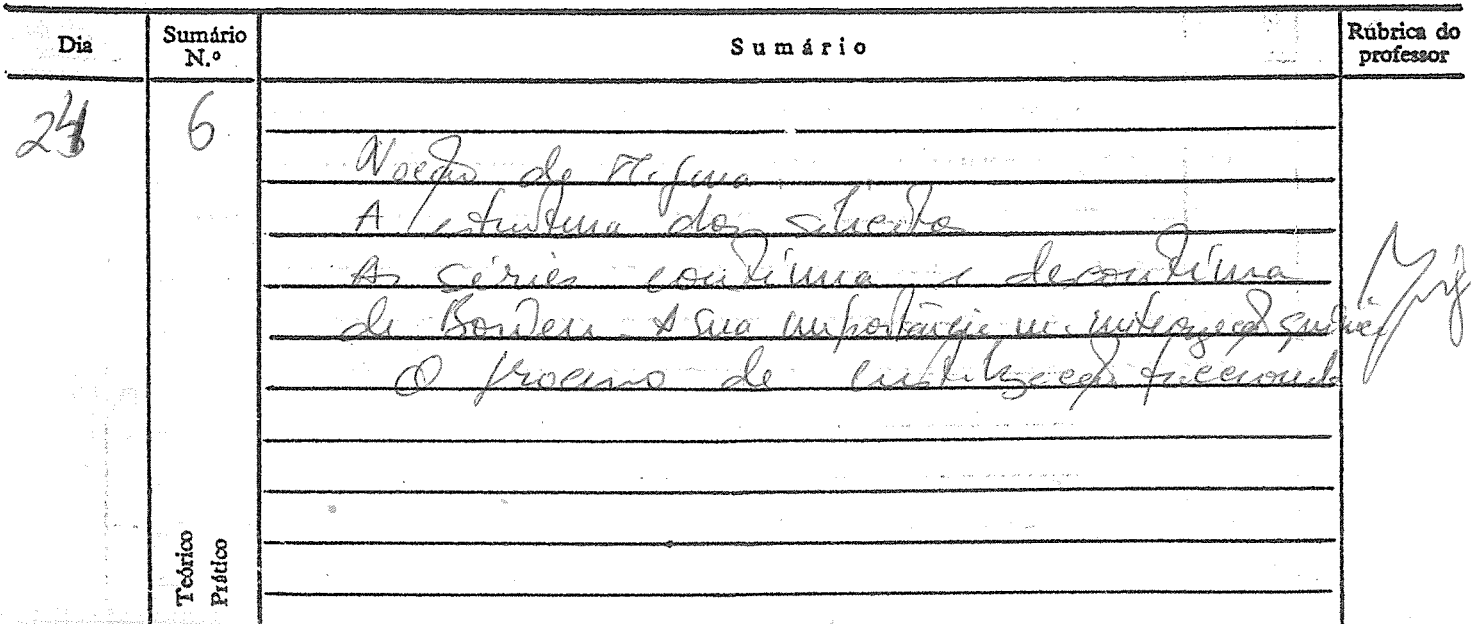 Dia
Sumário N.º
Sumário
Rúbrica do professor
24
6
Noção de Magma
A estrutura dos silicatos
As séries contínua e descontínua
de Bowen. A sua importância na
O processo de cristalização fraccionada
Teórico
Prático